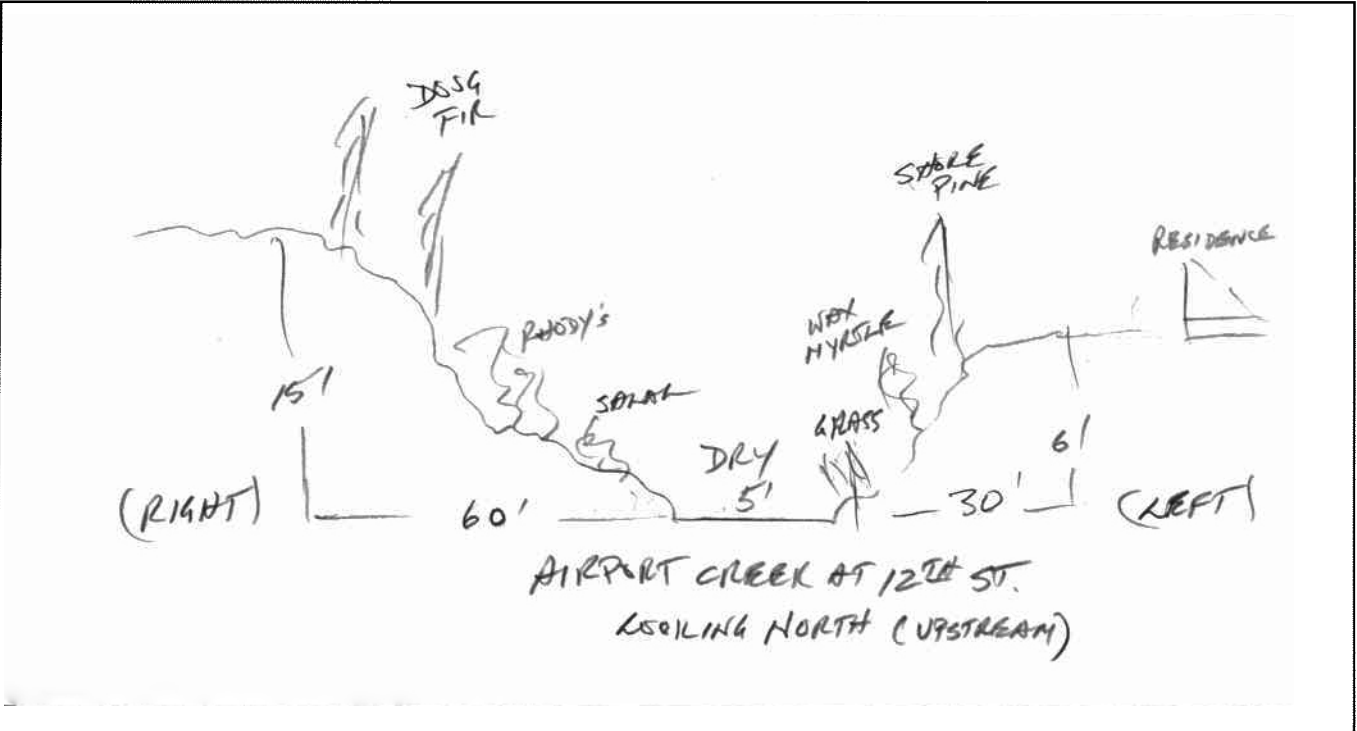 DOUG
FIR
SHORE
PINE
RESIDENCE
RHODY'S
WAX
MYRTLE
15'
SALAL
GRASS
DRY
5'
6'
(RIGHT)
60'
30'
(LEFT)
AIRPORT CREEK AT 12TH ST.
LOOKING NORTH (UPSTREAM)